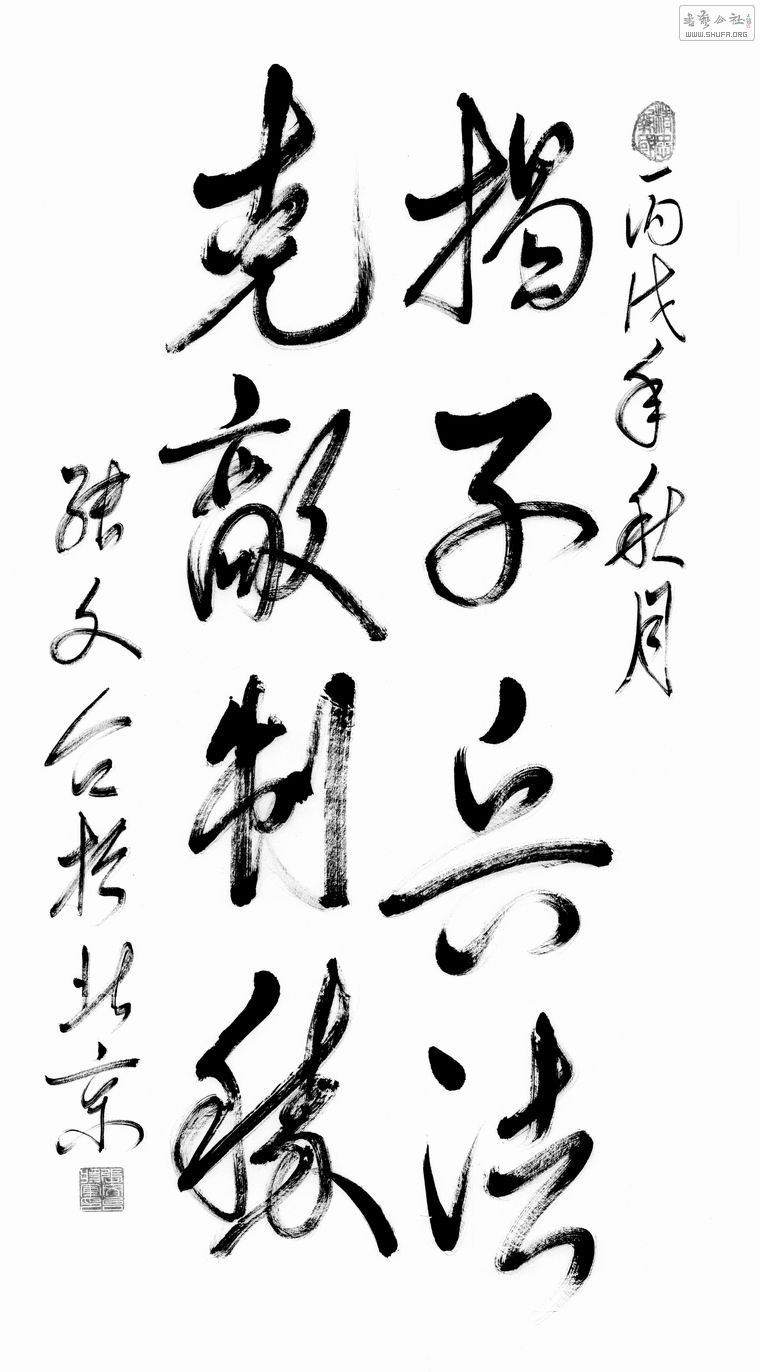 書藝公社
WWW.SHUFA.ORG
丙戌年秋月
揭子兵法
克敵制勝
張文台於北京